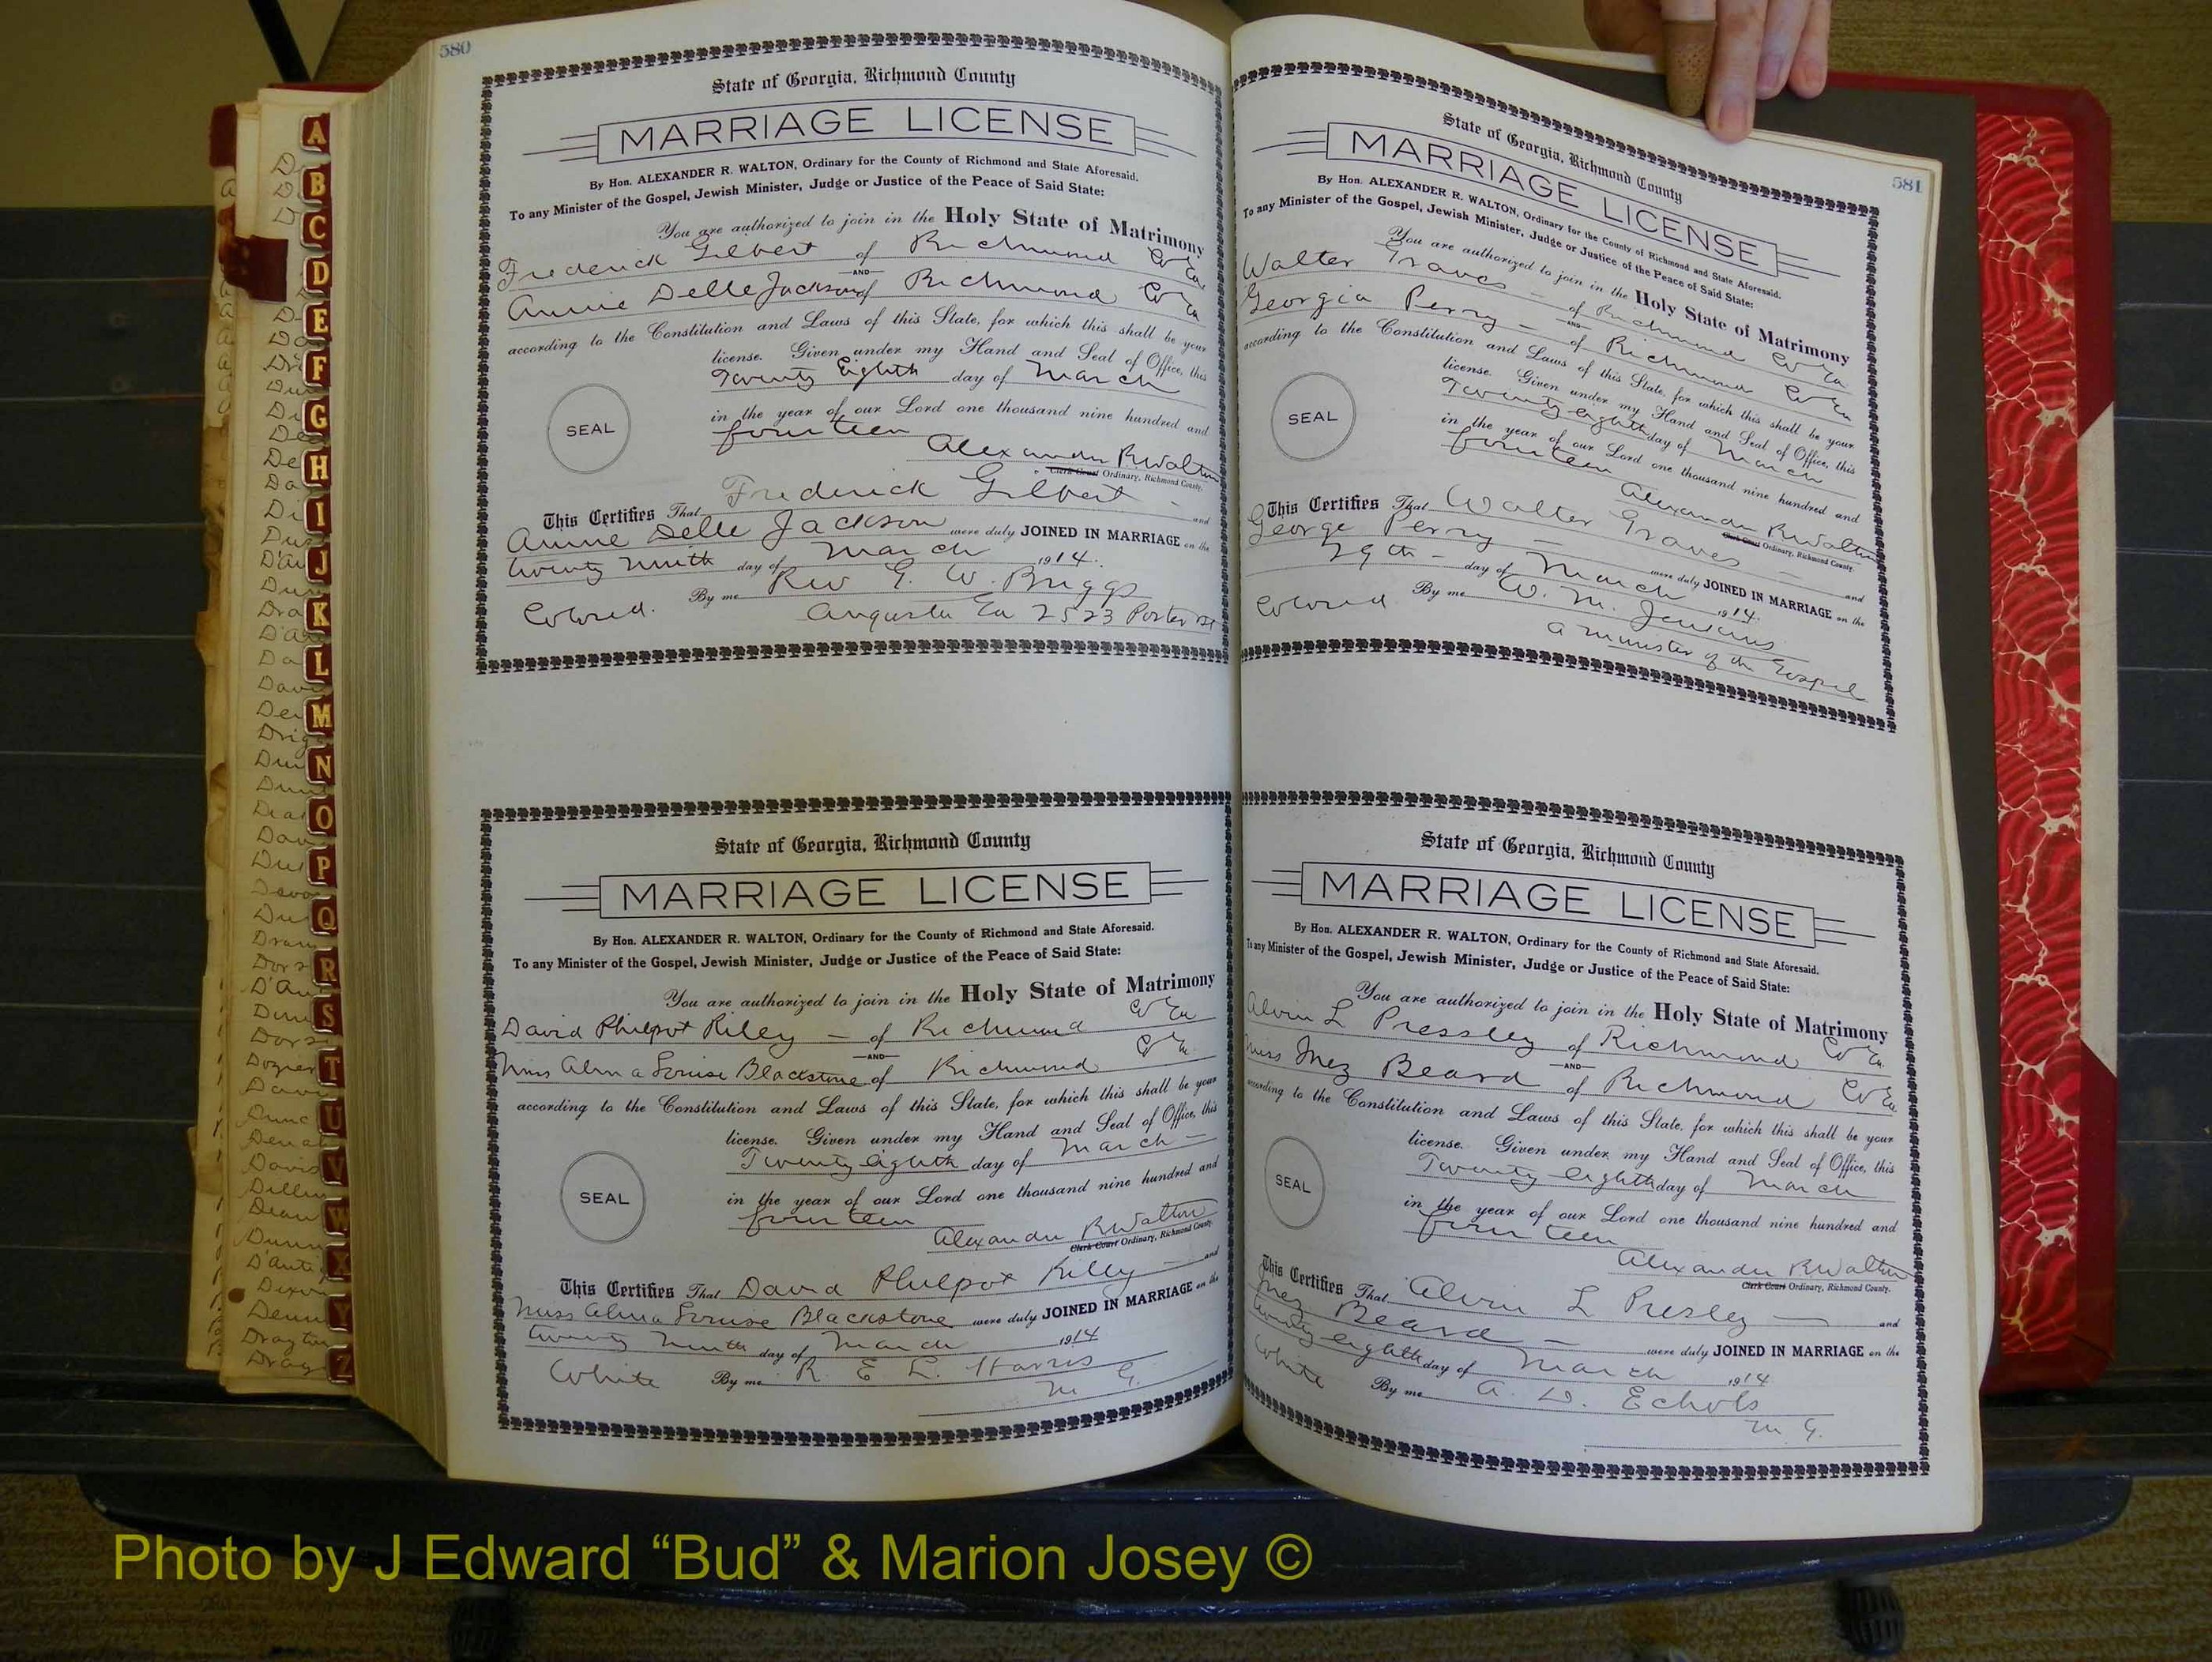 580
State of Georgia, Richmond County
MARRIAGE LICENSE
By Hon. ALEXANDER R. WALTON, Ordinary for the County of Richmond and State Aforesaid.
To any Minister of the Gospel, Jewish Minister, Judge or Justice of the Peace of Said State:
You are authorized to join in the Holy State of Matrimony
Frederick Gilbert of Richmond Co Ga
AND
Annie Delle Jackson of Richmond Co Ga
according to the Constitution and Laws of this State, for which this shall be your
license. Given under my Hand and Seal of Office, this
Twenty Eighth day of March
in the year of our Lord one thousand nine hundred and
fourteen
SEAL
Alexander R Walton
Clerk Court Ordinary, Richmond County.
This Certifies That Frederick Gilbert and
Annie Delle Jackson were duly JOINED IN MARRIAGE on the
twenty ninth day of March 1914.
By me Rev G. W. Briggs
Colored. Augusta Ga 2523 Porter St
State of Georgia, Richmond County
MARRIAGE LICENSE
By Hon. ALEXANDER R. WALTON, Ordinary for the County of Richmond and State Aforesaid.
To any Minister of the Gospel, Jewish Minister, Judge or Justice of the Peace of Said State:
You are authorized to join in the Holy State of Matrimony
David Philpot Riley of Richmond Co Ga
AND
Miss Alma Louise Blackstone of Richmond Co Ga
according to the Constitution and Laws of this State, for which this shall be your
license. Given under my Hand and Seal of Office, this
Twenty eighth day of March
in the year of our Lord one thousand nine hundred and
fourteen
SEAL
Alexander R Walton
Clerk Court Ordinary, Richmond County.
This Certifies That David Philpot Rilly and
Miss Alma Louise Blackstone were duly JOINED IN MARRIAGE on the
twenty ninth day of March 1914
White By me R. E. L. Harris
M G.
581
State of Georgia, Richmond County
MARRIAGE LICENSE
By Hon. ALEXANDER R. WALTON, Ordinary for the County of Richmond and State Aforesaid.
To any Minister of the Gospel, Jewish Minister, Judge or Justice of the Peace of Said State:
You are authorized to join in the Holy State of Matrimony
Walter Graves of Richmond Co Ga
AND
Georgia Perry of Richmond Co Ga
according to the Constitution and Laws of this State, for which this shall be your
license. Given under my Hand and Seal of Office, this
Twenty eighth day of March
in the year of our Lord one thousand nine hundred and
fourteen
SEAL
Alexander R Walton
Clerk Court Ordinary, Richmond County.
This Certifies That Walter Graves and
George Perry were duly JOINED IN MARRIAGE on the
29th day of March 1914.
Colored By me W. M. Jenkins
a minister of the Gospel
State of Georgia, Richmond County
MARRIAGE LICENSE
By Hon. ALEXANDER R. WALTON, Ordinary for the County of Richmond and State Aforesaid.
To any Minister of the Gospel, Jewish Minister, Judge or Justice of the Peace of Said State:
You are authorized to join in the Holy State of Matrimony
Alvin L Pressley of Richmond Co Ga
AND
Miss Inez Beard of Richmond Co Ga
according to the Constitution and Laws of this State, for which this shall be your
license. Given under my Hand and Seal of Office, this
Twenty eighth day of March
in the year of our Lord one thousand nine hundred and
fourteen
SEAL
Alexander R Walton
Clerk Court Ordinary, Richmond County.
This Certifies That Alvin L Presley and
Inez Beard were duly JOINED IN MARRIAGE on the
twenty eighth day of March 1914
White By me A. D. Echols
M G.
A
B
C
D
E
F
G
H
I
J
K
L
M
N
O
P
Q
R
S
T
U
V
W
X
Y
Z
Photo by J Edward “Bud” & Marion Josey ©